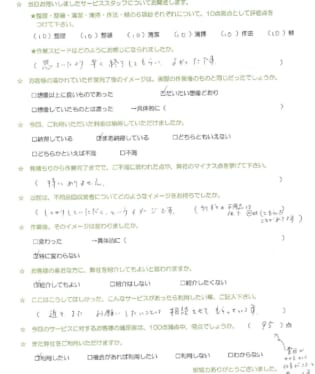 ☆ 当日お伺いしましたサービススタッフについてお聞きします。
★整理・整頓・清潔・清掃・作法・躾の6項目それぞれについて、10点満点として評価点をつけて下さい。
(10)整理 (10)整頓 (10)清潔 (10)清掃 (10)作法 (10)躾
★作業スピードはどのようにお感じになられましたか。
( 思ったより早く終りてもらい よかったです )
☆ お客様の描かれていた作業完了後のイメージは、実際の作業後のものと同じだったでしょうか。
□想像以上に良いものであった ☑だいたい想像どおり
□想像していたものとは違った →具体的に( )
☆ 今回、ご利用いただいた料金は納得していただけましたか。
□納得している ☑まあ納得している □どちらともいえない
□どちらかといえば不満 □不満
☆ 見積りから作業完了までで、ご不満に思われた点や、弊社のマイナス点を挙げて下さい。
( 特にありません )
☆ 以前は、不用品回収業者についてどのようなイメージをお持ちでしたか。
☆ 作業後、そのイメージは変わりましたか。
□変わった →具体的に( )
☑特に変わらない
☆ お客様の身近な方に、弊社を紹介してもよいと思われますか。
☑紹介してもよい □紹介はしない □紹介したくない
☆ ここはこうしてほしかった、こんなサービスがあったら利用したい等、ご記入下さい。
☆ 今回のサービスに対するお客様の満足度は、100点満点中、何点でしょうか。 (95)点
☆ また弊社をご利用いただけますか。
☑利用したい □機会があれば利用したい □利用しない □わからない
ご協力ありがとうございました。